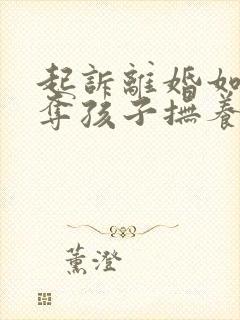 起訴離婚如
奪孩子撫養
薰澄